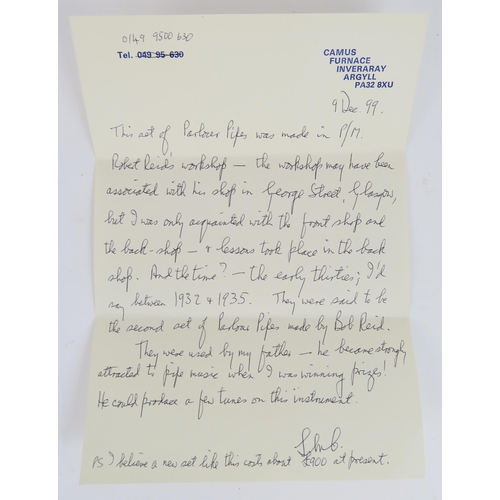 0149 9500 630
Tel. 049 95 630
CAMUS
FURNACE
INVERARAY
ARGYLL
PA32 8XU
9 Dec. 99.
This set of Parlour Pipes was made in P/M.
Robert Reid's workshop — the workshop may have been
associated with his shop in George Street, Glasgow,
but I was only acquainted with the front shop and
the back-shop — & lessons took place in the back
shop. And the time? — the early thirties; I'd
say between 1932 & 1935. They were said to be
the second set of Parlour Pipes made by Bob Reid.
They were used by my father — he became strongly
attracted to pipe music when I was winning prizes!
He could produce a few tunes on this instrument.
PS I believe a new set like this costs about £900 at present.